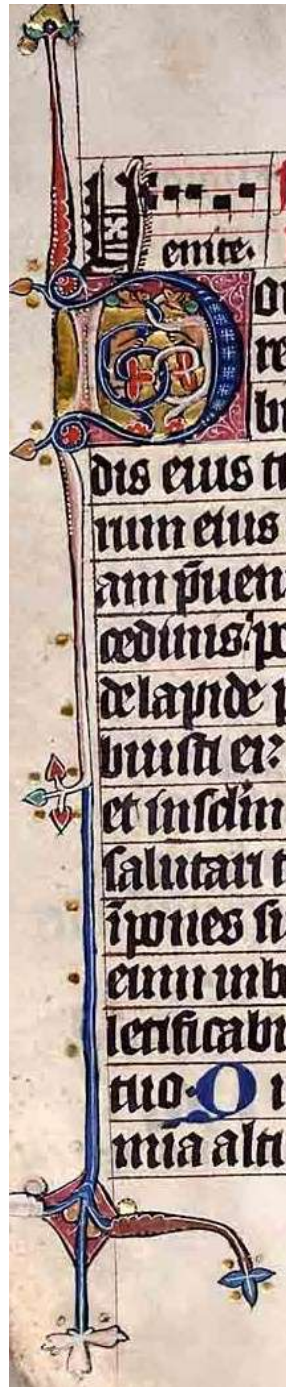 Venite.
Do
re
bu
dis eius t
rum eius
am p̄uen
cedinis: po
de lapide p
buisti ei:
et in sc̄lm
salutari t
īpones su
eum in b
letificabi
tuo. Q i
mia alti